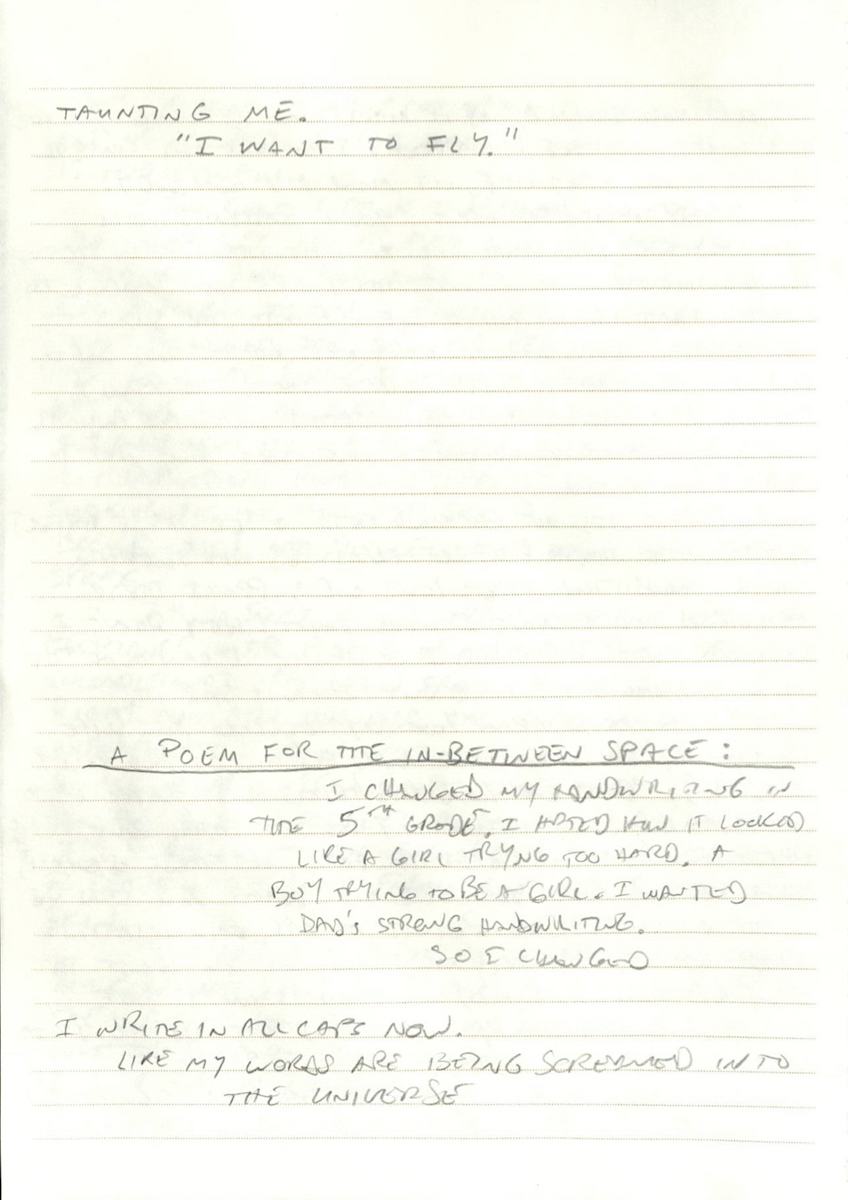 TAUNTING ME.
"I WANT TO FLY."
A POEM FOR THE IN-BETWEEN SPACE:
I CHANGED MY HANDWRITING IN
THE 5TH GRADE. I HATED HOW IT LOOKED
LIKE A GIRL TRYNG TOO HARD. A
BOY TRYING TO BE A GIRL. I WANTED
DAD'S STRONG HANDWRITING.
SO I CHANGED
I WRITE IN ALL CAPS NOW.
LIKE MY WORDS ARE BEING SCREAMED INTO
THE UNIVERSE